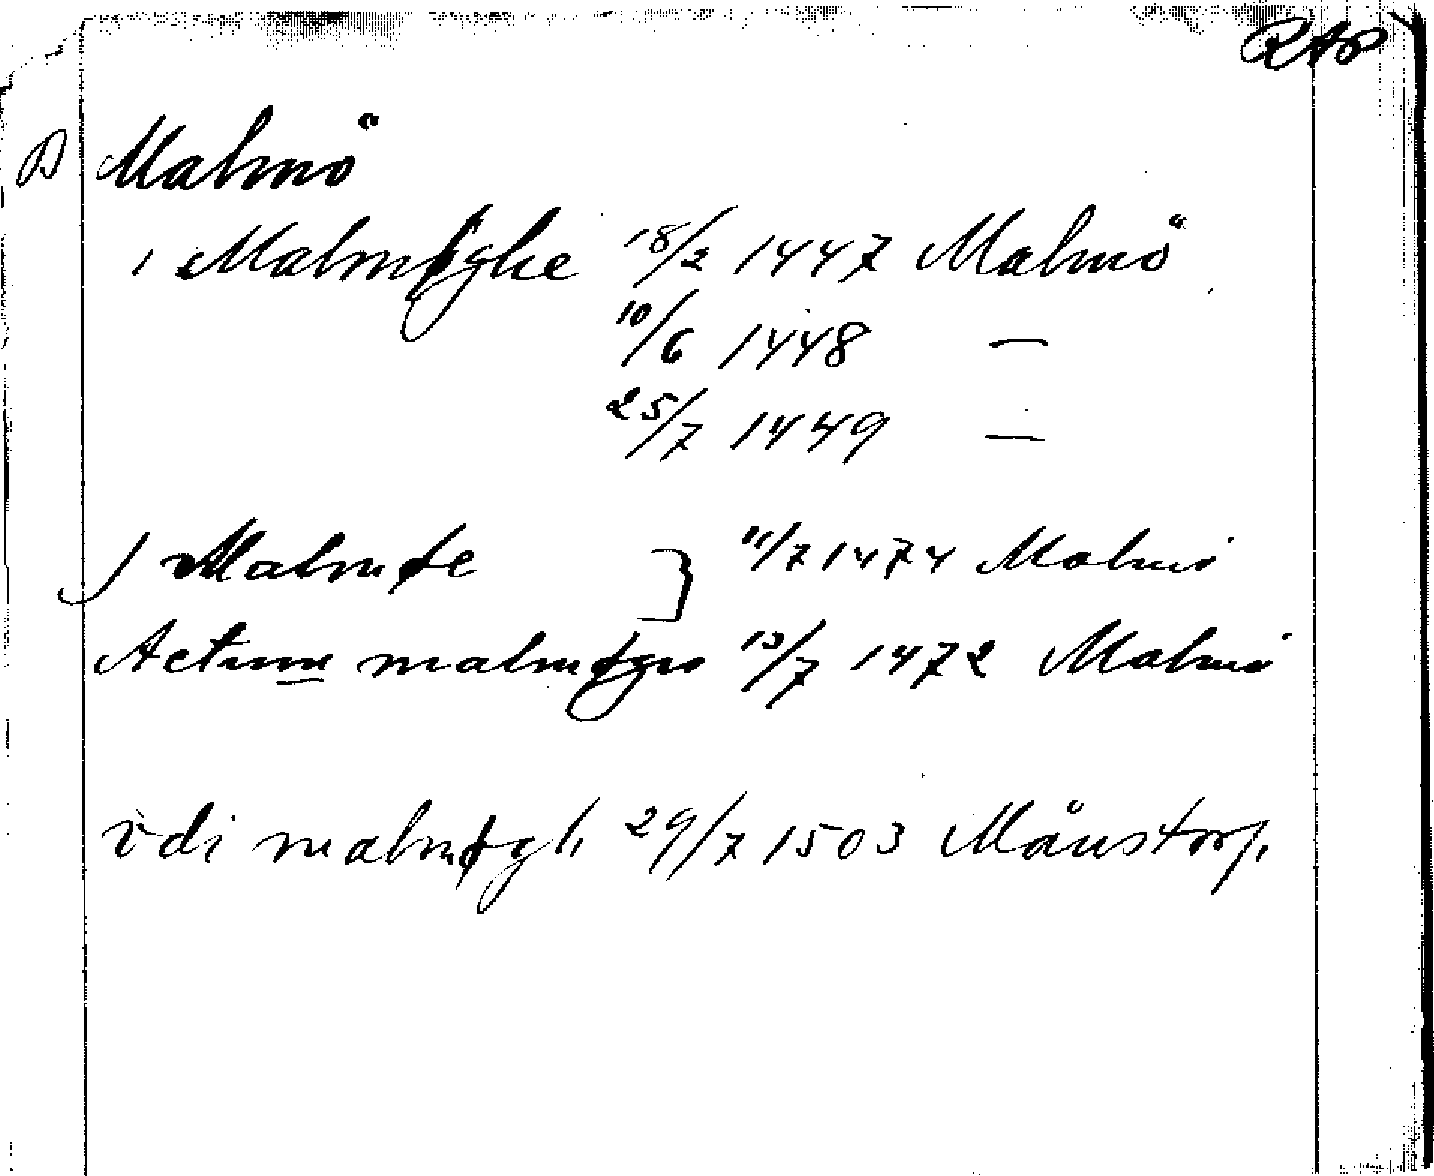 RAP
D Malmö
i Malmøghe 18/2 1447 Malmö
10/6 1448 —
25/7 1449 —
J Malmøe } 11/7 1474 Malmö
Actum malmøgis 13/7 1472 Malmö
vdi malmøgh 29/7 1503 Månstorp.